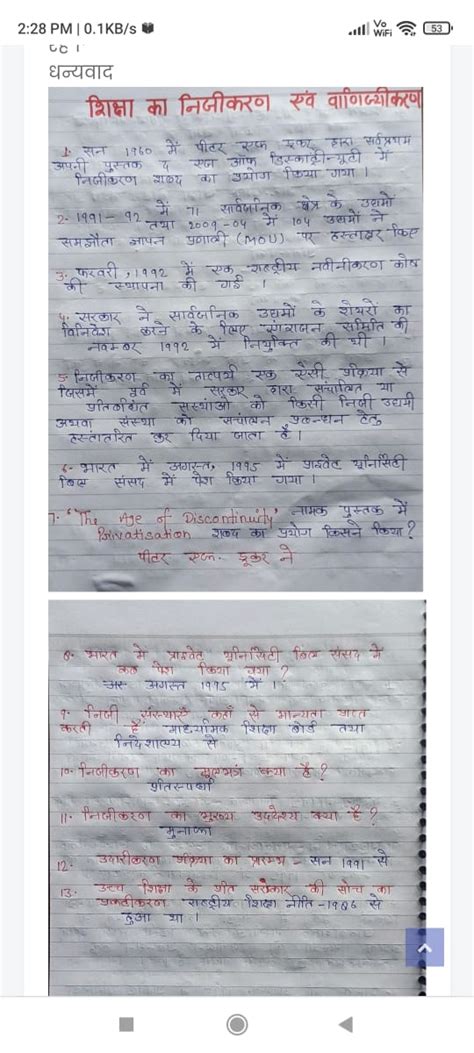 2:28 PM | 0.1KB/s
Vo
WiFi
53
धन्यवाद
शिक्षा का निजीकरण एवं वाणिज्यीकरण
1. सन 1960 में पीटर एफ० ड्रकर द्वारा सर्वप्रथम
अपनी पुस्तक द एज ऑफ डिस्कांट्रीन्यूटी में
निजीकरण शब्द का उपयोग किया गया ।
2- 1991-92 में 71 सार्वजनिक क्षेत्र के उद्यमों
तथा 2009-04 में 104 उद्यमों ने
समझौता ज्ञापन प्रणाली (MOU) पर हस्ताक्षर किए
3. फरवरी, 1992 में एक राष्ट्रीय नवीनीकरण कोष
की स्थापना की गई ।
4. सरकार ने सार्वजनिक उद्यमों के शेयरों का
विनिवेश करने के लिए रंगराजन समिति की
नवम्बर 1992 में नियुक्ति की थी ।
5- निजीकरण का तात्पर्य एक ऐसी प्रक्रिया से
जिसमें पूर्व में सरकार द्वारा संचालित या
प्रतिबंधित संस्थाओं को किसी निजी उद्यमी
अथवा संस्था को संचालन प्रबन्धन हेतु
हस्तातरित कर दिया जाता है ।
6- भारत में अगस्त, 1995 में प्राइवेट यूनिर्सिटी
बिल संसद में पेश किया गया ।
7- "The Age of Discontinuity' नामक पुस्तक में
Privatisation शब्द का प्रयोग किसने किया ?
पीटर एफ. ड्रकर ने
8- भारत में प्राइवेट यूनिर्सिटी बिल संसद में
कब पेश किया गया ?
अगस्त 1995 में ।
9- निजी संस्थाएँ कहाँ से मान्यता प्राप्त
करती हैं माध्यमिक शिक्षा बोर्ड तथा
निदेशालय से
10- निजीकरण का मूलमंत्र क्या है ?
प्रतिस्पर्धा
11. निजीकरण का मुख्य उद्देश्य क्या है ?
मुनाफा
12. उदारीकरण प्रक्रिया का प्रारम्भ - सन 1991 से
13. उच्च शिक्षा के प्रति सरकार की सोच का
प्रकटीकरण राष्ट्रीय शिक्षा नीति-1986 से
हुआ था ।